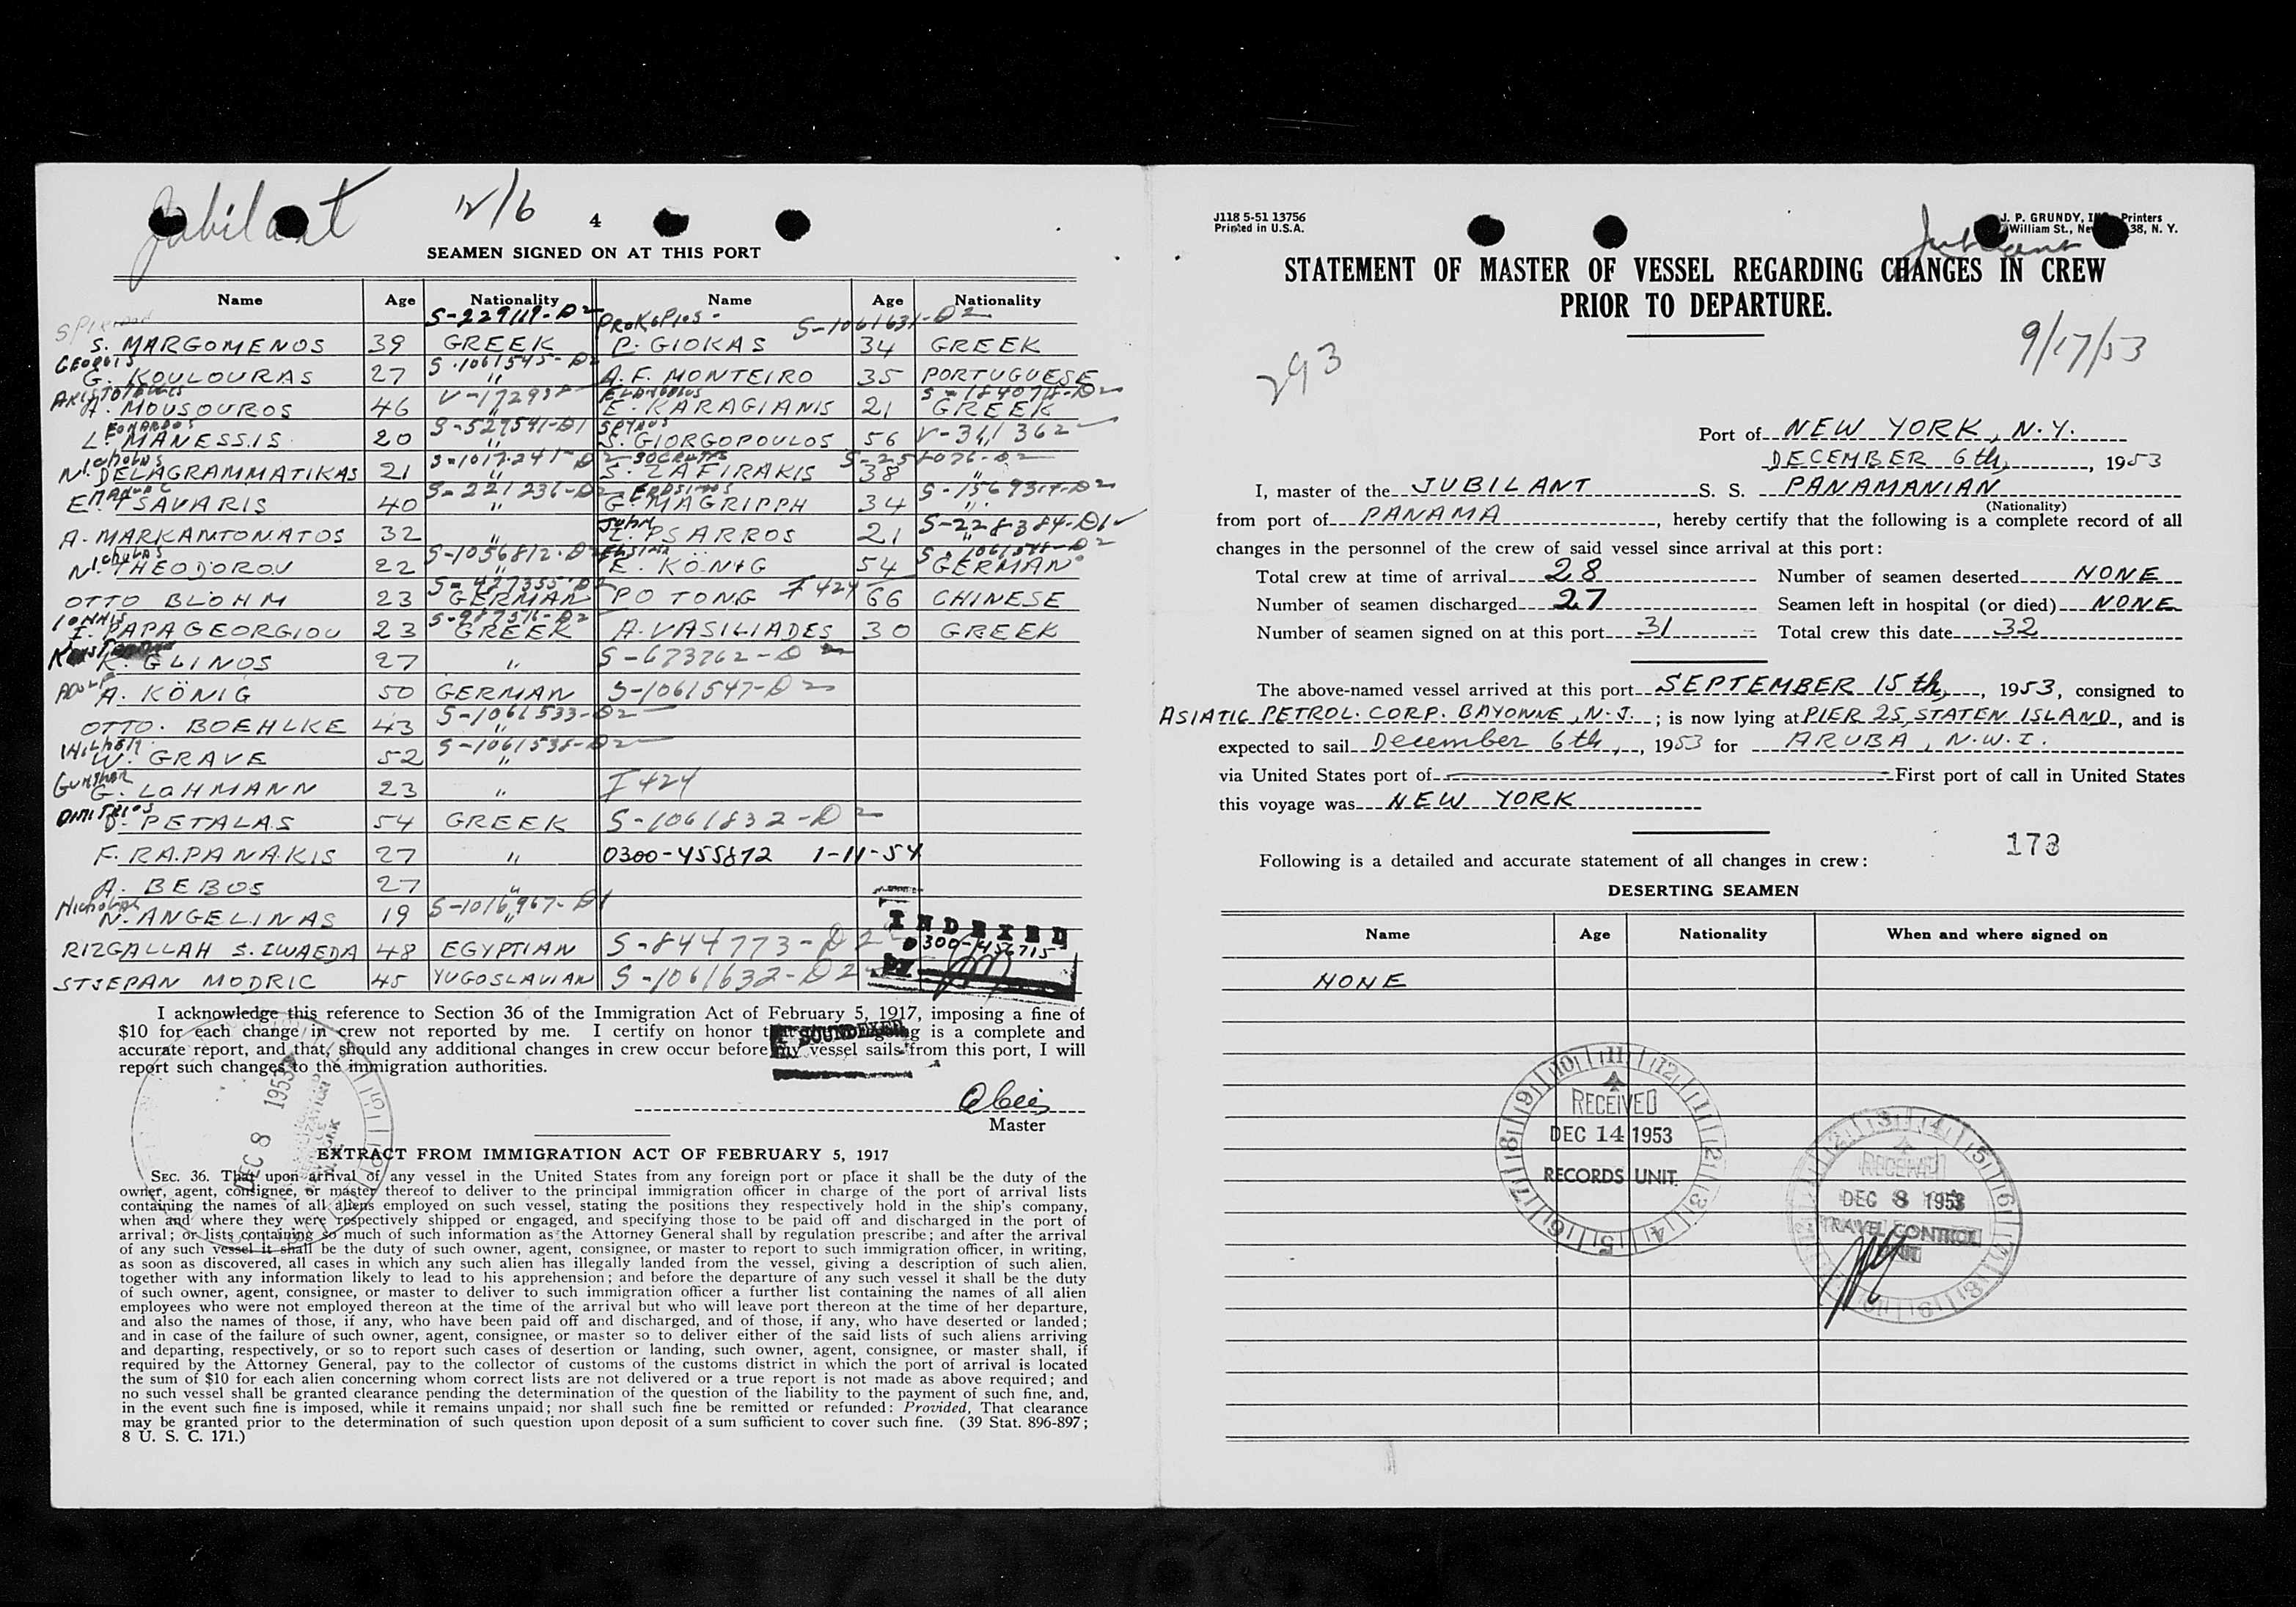 Jubilant
12/6
4
SEAMEN SIGNED ON AT THIS PORT
Name Age Nationality Name Age Nationality
S-229119-D2 PROKOPIOS S-1061631-D2
S. MARGOMENOS 39 GREEK P. GIOKAS 34 GREEK
GEORGIS S-1061545-D2
G. KOULOURAS 27 " A. F. MONTEIRO 35 PORTUGUESE
V-172938 S-1840718-D2
A. MOUSOUROS 46 " E. KARAGIANIS 21 GREEK
LEONARDOS S-529541-D1 SPYROS V-341362
L. MANESSIS 20 " S. GIORGOPOULOS 56 "
Nicholas S-1017241-D2 SOCRATES
N. DELAGRAMMATIKAS 21 " S. ZAFIRAKIS 38 "
S-221236-D2 S-1569317-D2
E. TSAVARIS 40 " G. MAGRIPPH 34 "
John S-228384-D1
A. MARKANTONATOS 32 " PSARROS 21 "
Nicholas S-1056812-D2
N. THEODOROU 22 " E. KÖNIG 54 GERMAN
S-427355-D2
OTTO BLOHM 23 GERMAN PO TONG I 424 66 CHINESE
IONNIS S-987576-D2
I. PAPAGEORGIOU 23 GREEK A. VASILIADES 30 GREEK
K. GLINOS 27 " S-673762-D2
ADOLF
A. KÖNIG 50 GERMAN S-1061547-D2
S-1061533-D2
OTTO. BOEHLKE 43 "
Wilhelm S-1061538-D2
W. GRAVE 52 "
Gunther
G. LOHMANN 23 " I 424
DMITRIOS
D. PETALAS 54 GREEK S-1061832-D2
F. RAPANAKIS 27 " 0300-455872 1-11-54
A. BEBOS 27 "
Nicholas S-1016967-D1
N. ANGELINAS 19 " INDEXED
RIZGALLAH S. ZWAEDA 48 EGYPTIAN S-844773-D2 0300-456715
STJEPAN MODRIC 45 YUGOSLAVIAN S-1061632-D2 BY
I acknowledge this reference to Section 36 of the Immigration Act of February 5, 1917, imposing a fine of
$10 for each change in crew not reported by me. I certify on honor that the foregoing is a complete and
SOUNDEXED
accurate report, and that, should any additional changes in crew occur before my vessel sails from this port, I will
report such changes to the immigration authorities.
Master
DEC 8 1953
EXTRACT FROM IMMIGRATION ACT OF FEBRUARY 5, 1917
SEC. 36. That upon arrival of any vessel in the United States from any foreign port or place it shall be the duty of the
owner, agent, consignee, or master thereof to deliver to the principal immigration officer in charge of the port of arrival lists
containing the names of all aliens employed on such vessel, stating the positions they respectively hold in the ship's company,
when and where they were respectively shipped or engaged, and specifying those to be paid off and discharged in the port of
arrival; or lists containing so much of such information as the Attorney General shall by regulation prescribe; and after the arrival
of any such vessel it shall be the duty of such owner, agent, consignee, or master to report to such immigration officer, in writing,
as soon as discovered, all cases in which any such alien has illegally landed from the vessel, giving a description of such alien,
together with any information likely to lead to his apprehension; and before the departure of any such vessel it shall be the duty
of such owner, agent, consignee, or master to deliver to such immigration officer a further list containing the names of all alien
employees who were not employed thereon at the time of the arrival but who will leave port thereon at the time of her departure,
and also the names of those, if any, who have been paid off and discharged, and of those, if any, who have deserted or landed;
and in case of the failure of such owner, agent, consignee, or master so to deliver either of the said lists of such aliens arriving
and departing, respectively, or so to report such cases of desertion or landing, such owner, agent, consignee, or master shall, if
required by the Attorney General, pay to the collector of customs of the customs district in which the port of arrival is located
the sum of $10 for each alien concerning whom correct lists are not delivered or a true report is not made as above required; and
no such vessel shall be granted clearance pending the determination of the question of the liability to the payment of such fine, and,
in the event such fine is imposed, while it remains unpaid; nor shall such fine be remitted or refunded: Provided, That clearance
may be granted prior to the determination of such question upon deposit of a sum sufficient to cover such fine. (39 Stat. 896-897;
8 U. S. C. 171.)
J118 5-51 13756
Printed in U.S.A.
J. P. GRUNDY, Printers
William St., 38, N. Y.
Jubilant
STATEMENT OF MASTER OF VESSEL REGARDING CHANGES IN CREW
PRIOR TO DEPARTURE.
293
9/17/53
Port of NEW YORK, N.Y.
DECEMBER 6th, 1953
I, master of the JUBILANT S. S. PANAMANIAN
(Nationality)
from port of PANAMA, hereby certify that the following is a complete record of all
changes in the personnel of the crew of said vessel since arrival at this port:
Total crew at time of arrival 28 Number of seamen deserted NONE
Number of seamen discharged 27 Seamen left in hospital (or died) NONE
Number of seamen signed on at this port 31 Total crew this date 32
The above-named vessel arrived at this port SEPTEMBER 15th, 1953, consigned to
ASIATIC PETROL. CORP. BAYONNE, N.J.; is now lying at PIER 25, STATEN ISLAND, and is
expected to sail December 6th, 1953 for ARUBA, N.W.I.
via United States port of First port of call in United States
this voyage was NEW YORK
173
Following is a detailed and accurate statement of all changes in crew:
DESERTING SEAMEN
Name Age Nationality When and where signed on
NONE
RECEIVED
DEC 14 1953
RECORDS UNIT
RECEIVED
DEC 8 1953
TRAVEL CONTROL
UNIT